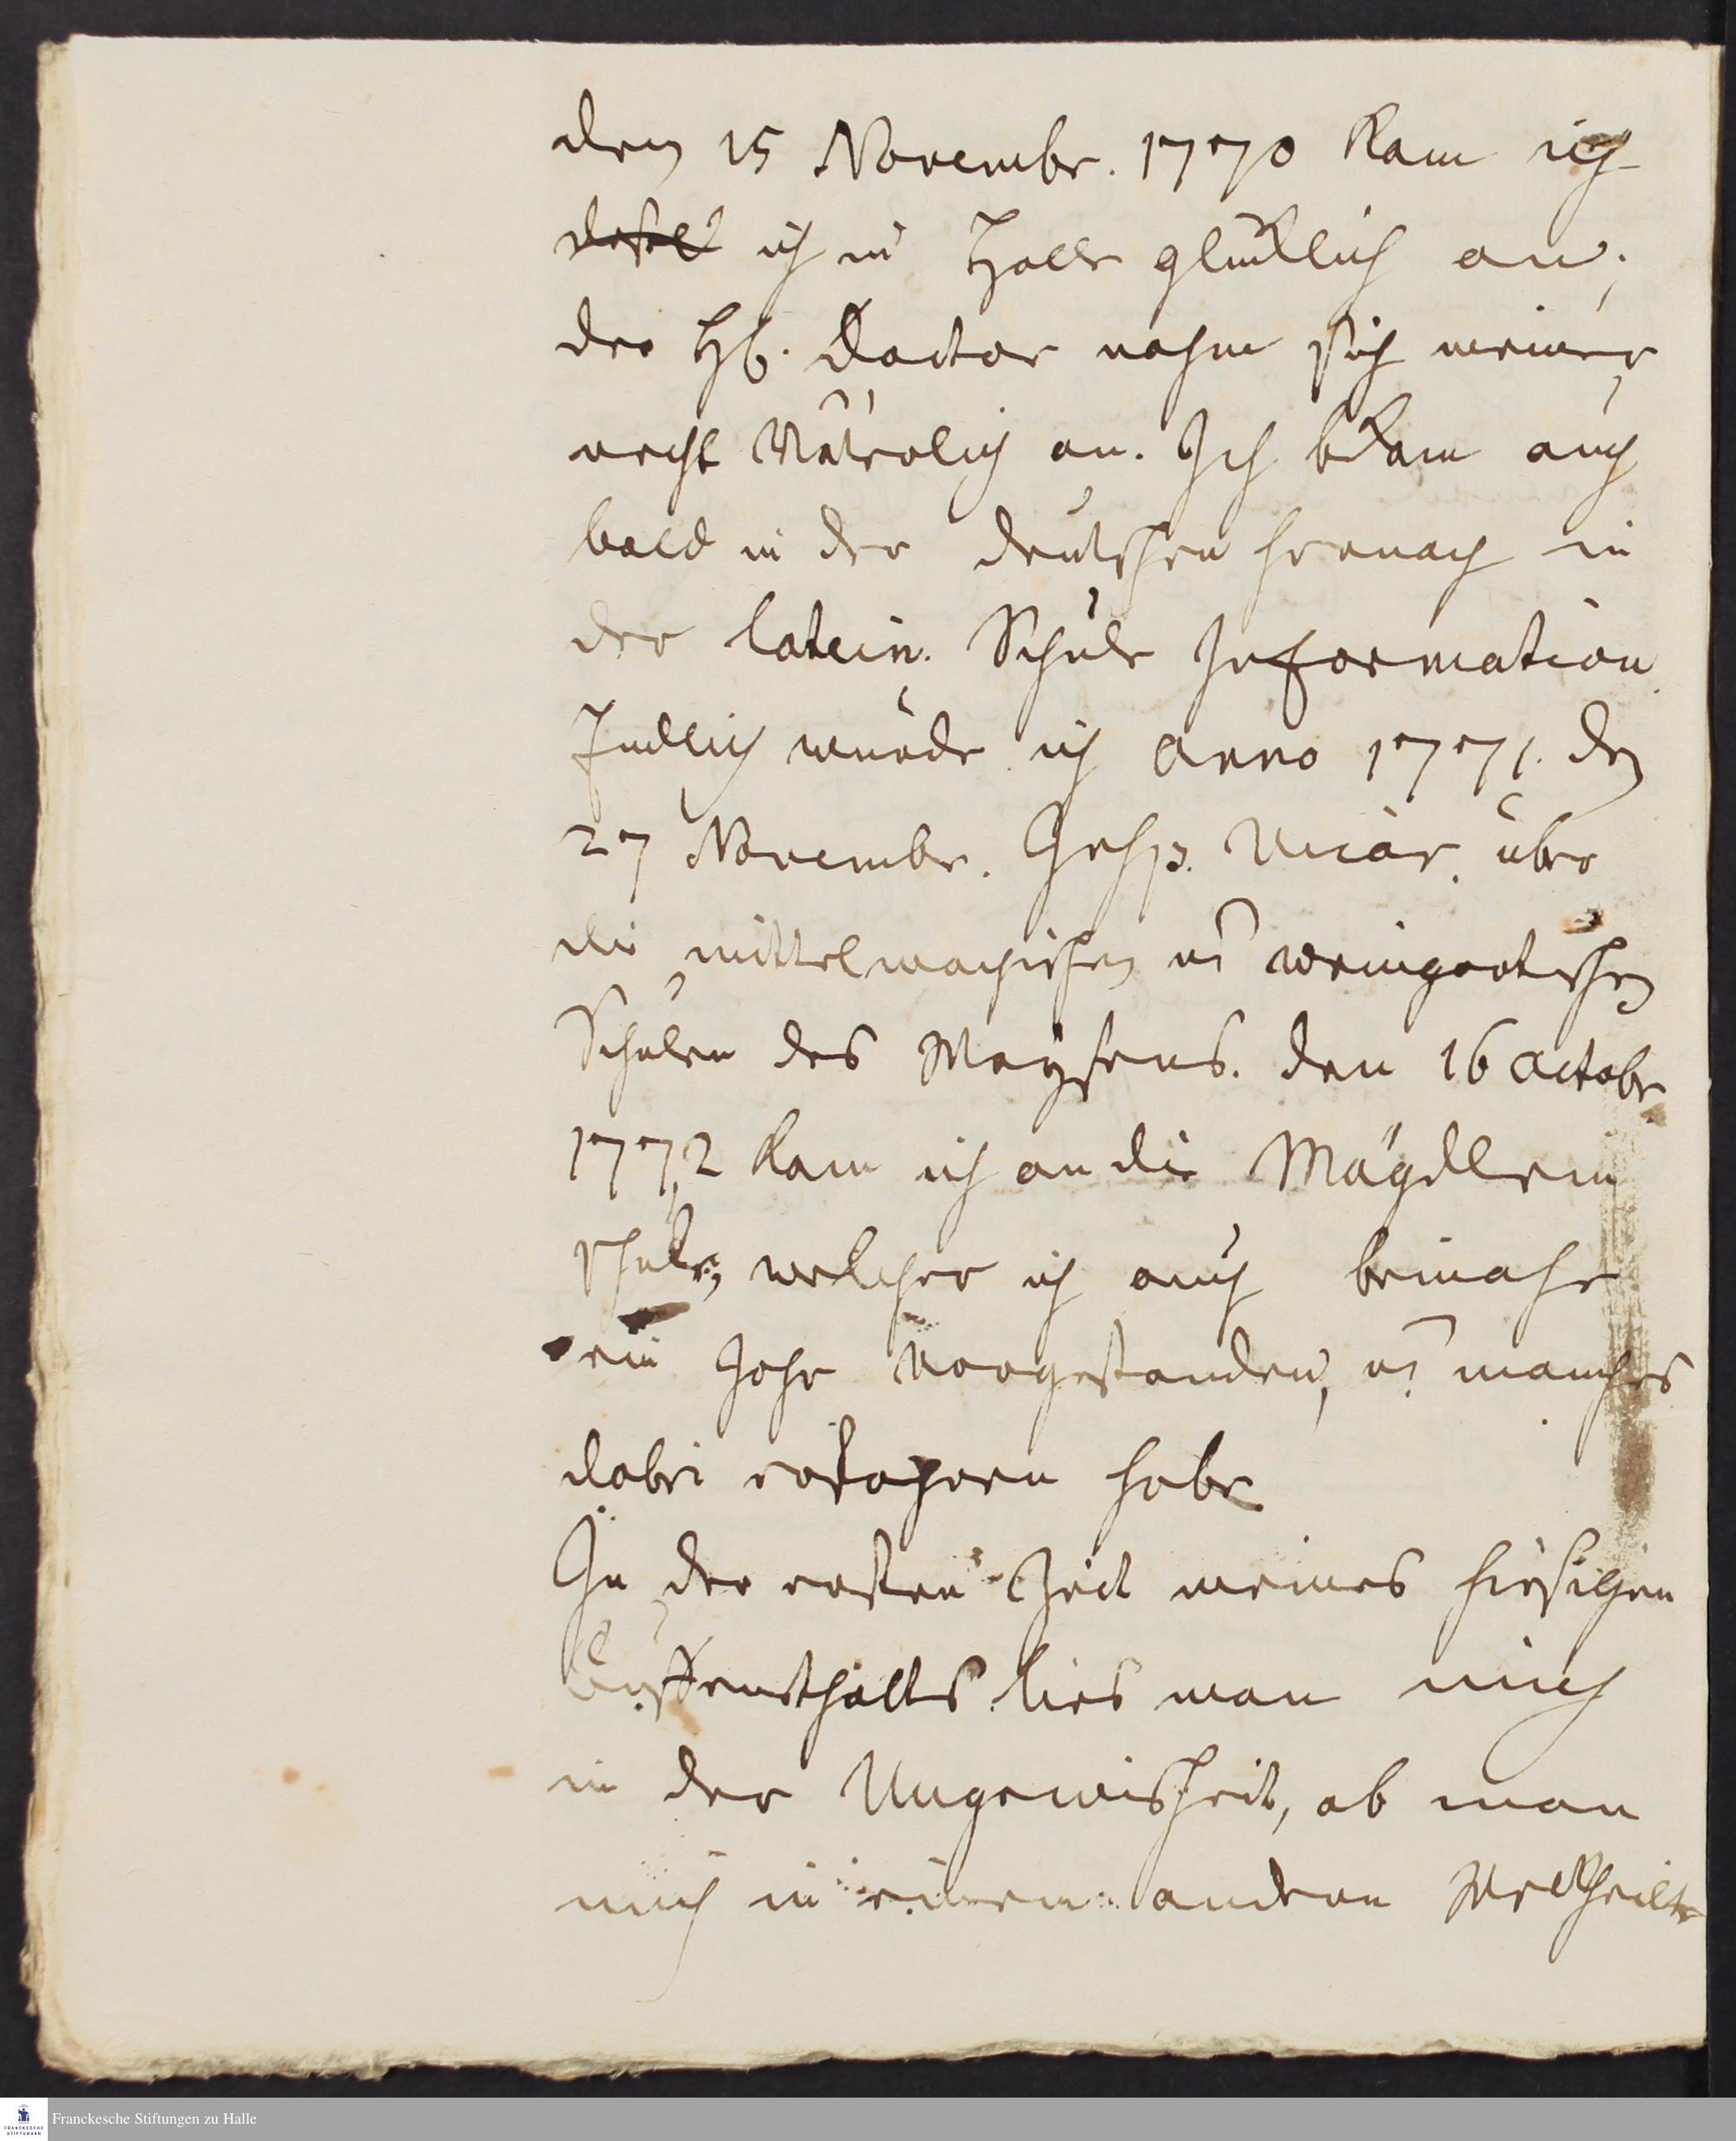 den 15 Novembr. 1770 kam ich
ich in Halle glücklich an;
der H. Doctor nahm sich meiner
recht Väterlich an. Ich bekam auch
bald in der deutschen hernach in
der latein. Schule Information
Endlich wurde ich anno 1771. den
27 Novembr. Vicar. über
die mittelwachischen u. weingartischen
Schulen des Waysens. den 16 Octobr
1772 kam ich an die Mägdlein
schule, welcher ich auch beinahe
ein Jahr vorgestanden, u. manches
dabei erfahren habe
In der ersten Zeit meines hiesigen
Auffenthalts lies man mich
in der Ungewisheit, ob man
mich in einem andern Weltheile
Franckesche Stiftungen zu Halle
FRANCKESCHE
STIFTUNGEN